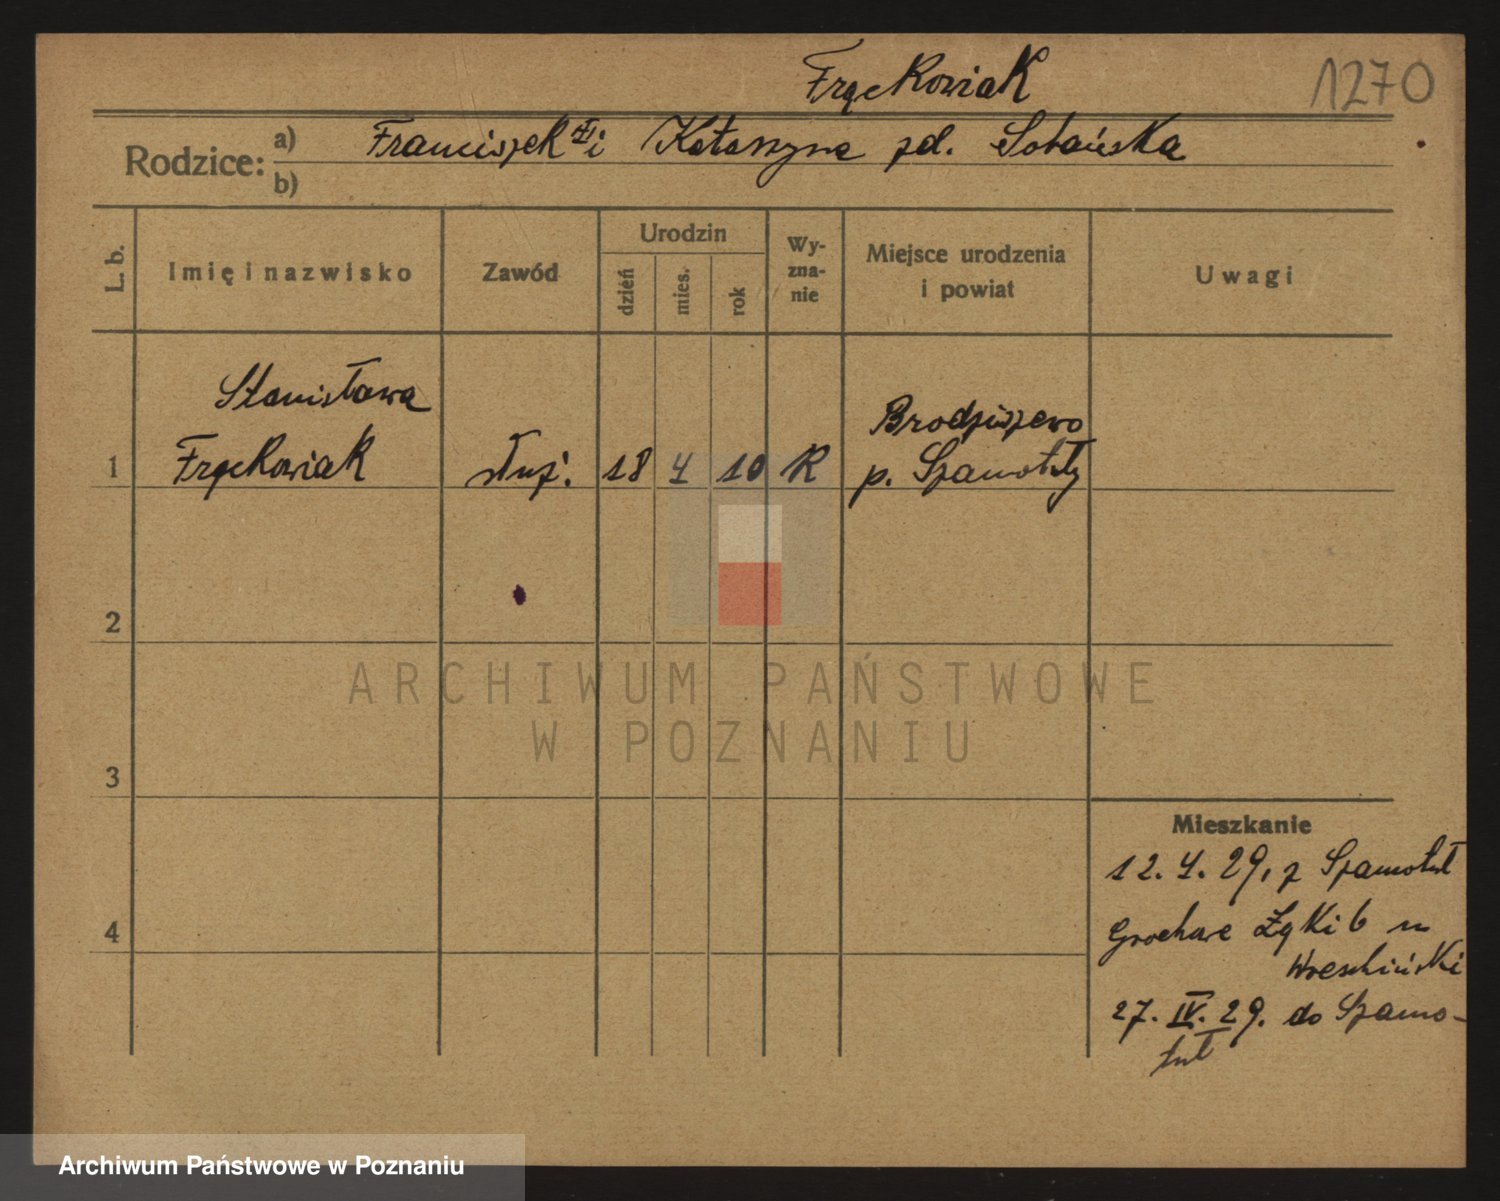 Frąckowiak
1270
Rodzice: a) Franciszek i Katarzyna zd. Sobańska
b)
L. b.
Imię i nazwisko
Zawód
Urodzin
dzień
mies.
rok
Wy-
zna-
nie
Miejsce urodzenia
i powiat
Uwagi
Stanisława
Brodziszewo
1 Frąckowiak służ. 18 4 10 R p. Szamotuły
2
ARCHIWUM PAŃSTWOWE
W POZNANIU
3
Mieszkanie
12.4.29. z Szamotuł
4
Grochowe Łąki 6 u
27.IV.29. do Szamo-
tuł
Archiwum Państwowe w Poznaniu